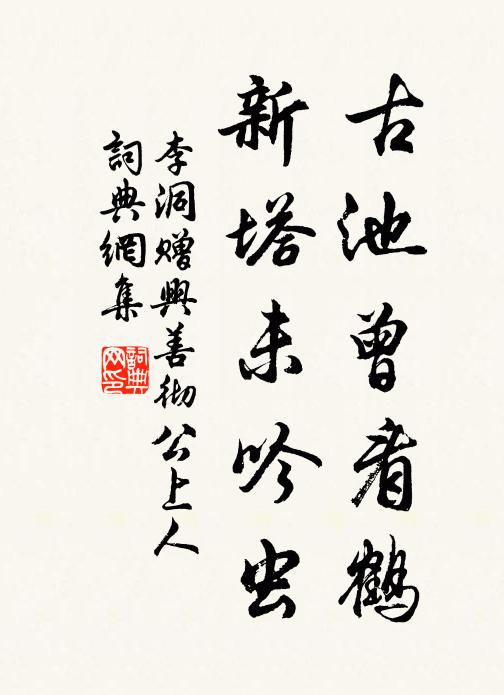 古池曾看鶴
新塔未吟虫
李洞赠興善彻公上人
詞典網集
詞典网印